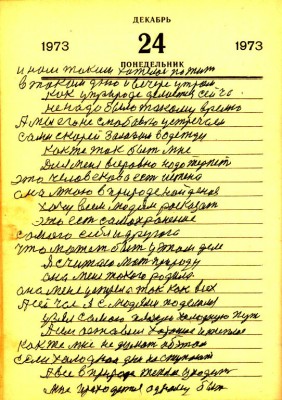 ДЕКАБРЬ
1973 24 1973
ПОНЕДЕЛЬНИК
и нам таким хотелось пожить
в таком дню и вечере утром
как у природе делается сейчас
не надо было такому время
А мы его не слабовно встречаем
сами скорей залазим в одежду
как же так быт мне
Для меня все равно надо терпеть
это человекова есть истина
она мною в природе найдена
хочу всем людям рассказать
это есть самохранение
самого себя и другого
что может быть у этом деле
я считаю мать природу
она меня такого родила
она меня у утром так как всех
А сейчас я с людями поделился
узял самого холодную путь
А им оставили хорошие и теплое
как же мне не думат об этом
если холодная дни наступают
А все в природе тепла уходят
мне приходится одному быт